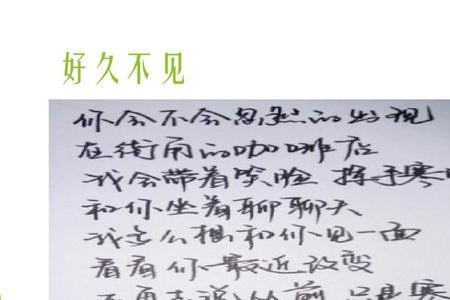 好久不见
你会不会忽然的出现
在街角的咖啡店
我会带着笑脸 挥手寒
和你坐着聊聊天
我多么想和你见一面
看看你最近改变
不再去说从前 只是寒